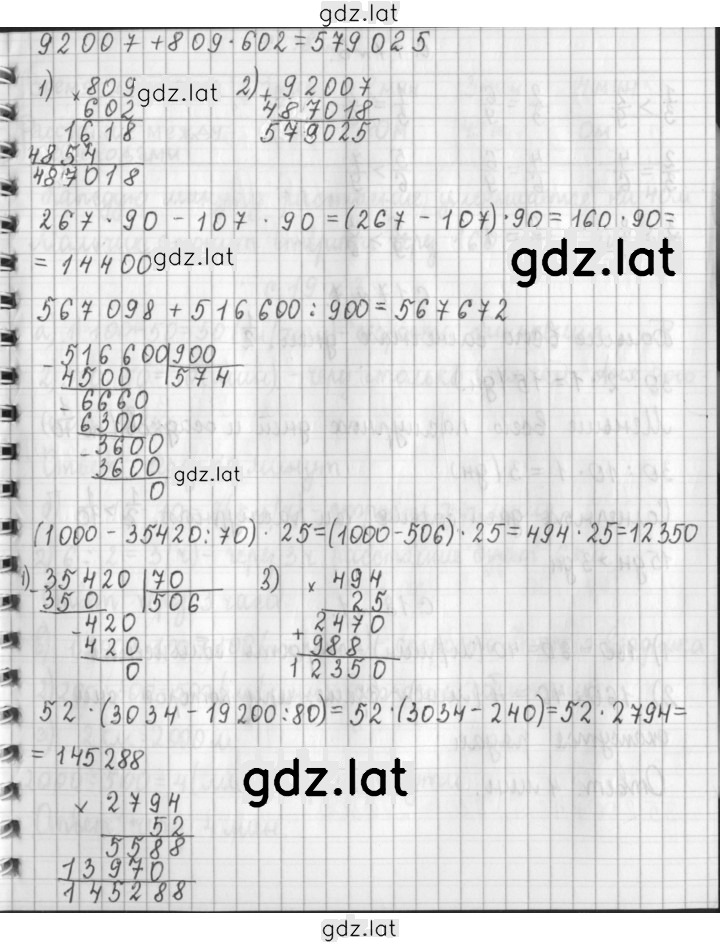 gdz.lat
92007+809·602=579025
1) ×809 gdz.lat 2) +92007
602 487018
1618 579025
4854
487018
267·90-107·90=(267-107)·90=160·90=
=14400 gdz.lat
gdz.lat
567098+516600:900=567672
-516600 900
4500 574
-6660
6300
-3600
3600 gdz.lat
0
(1000-35420:70)·25=(1000-506)·25=494·25=12350
1) -35420 70 3) ×494
350 506 25
-420 2470
420 +988
0 12350
52·(3034-19200:80)=52·(3034-240)=52·2794=
=145288
gdz.lat
×2794
52
5588
13970
145288
gdz.lat